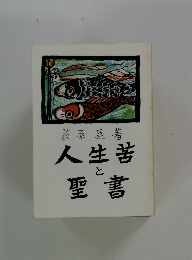 著
人生苦
と
聖書